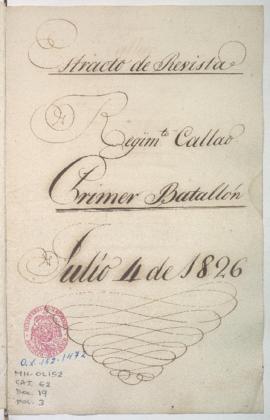 Estracto de Revista
Regim.to Callao
Primer Batallón
Julio 4 de 1826
O.L. 152-1472
MH-OL152
CAJ. 62
DOC. 19
FOL. 3